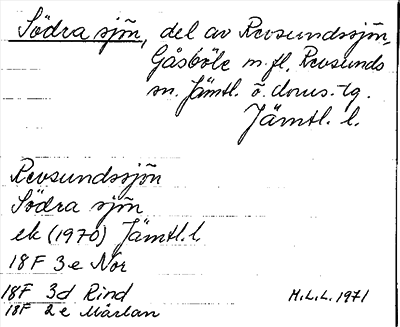 Södra sjön, del av Revsundssjön,
Gåsböle m. fl. Revsunds
sn. Jämtl. ö. doms. tg.
Jämtl. l.
Revsundssjön
Södra sjön
ek (1970) Jämtl. l
18F 3e Nor
18F 3d Rind
M.L.L. 1971
18F 2e Mårlan